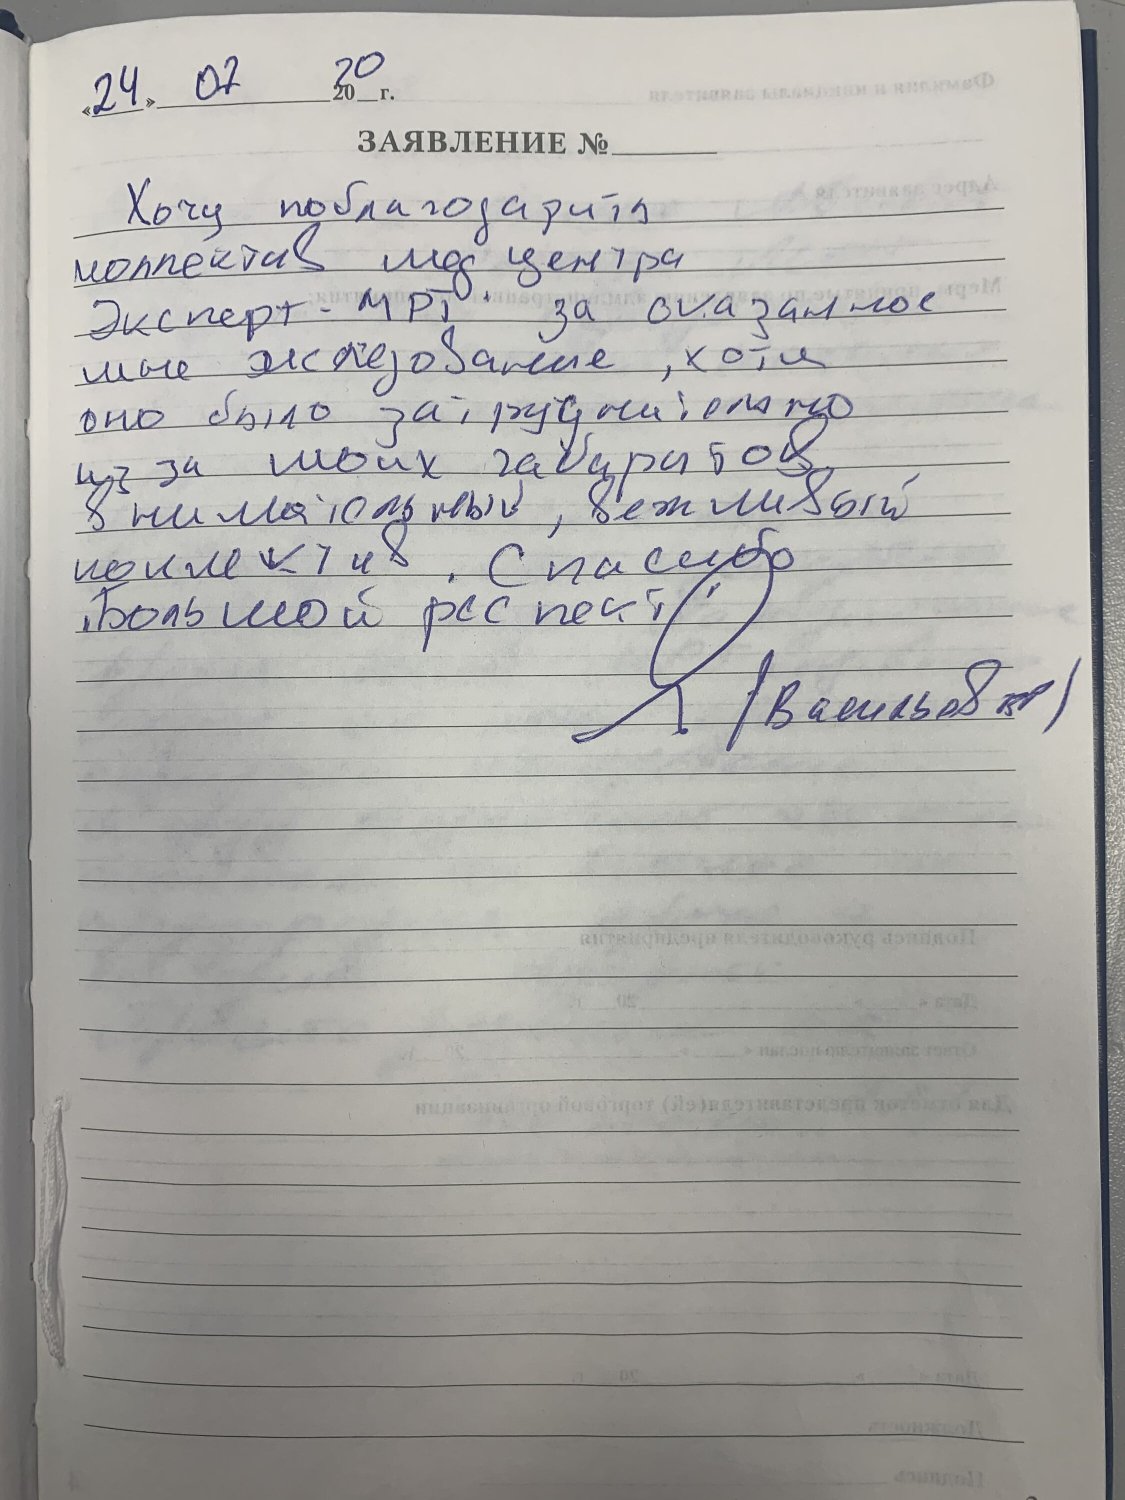 «24» 07 2020 г.
ЗАЯВЛЕНИЕ №
Хочу поблагодарить
коллектив мед центра
Эксперт-МРТ" за оказанное
мне исследование, хотя
оно было затруднительно
из за моих габаритов
внимательный, вежливый
коллектив. Спасибо
Большой респект!